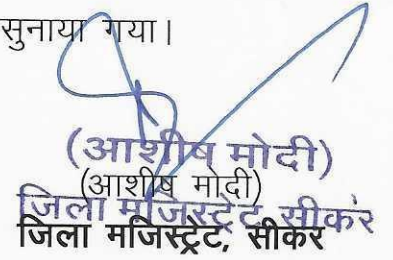 सुनाया गया।
(आशीष मोदी)
(आशीष मोदी)
जिला मजिस्ट्रेट, सीकर
जिला मजिस्ट्रेट, सीकर